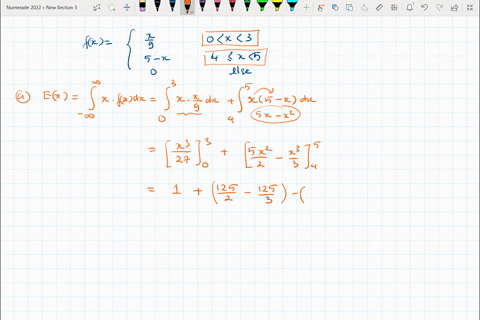 Numerade 2022 > New Section 3
f(x) = { x/9   0 < x < 3
5 - x   4 ≤ x < 5
0   else
(a) E(x) = ∫_{-∞}^{∞} x · f(x) dx = ∫_0^3 x · x/9 dx + ∫_4^5 x(5 - x) dx
5x - x²
= [x³/27]_0^3 + [5x²/2 - x³/3]_4^5
= 1 + (125/2 - 125/3) - (